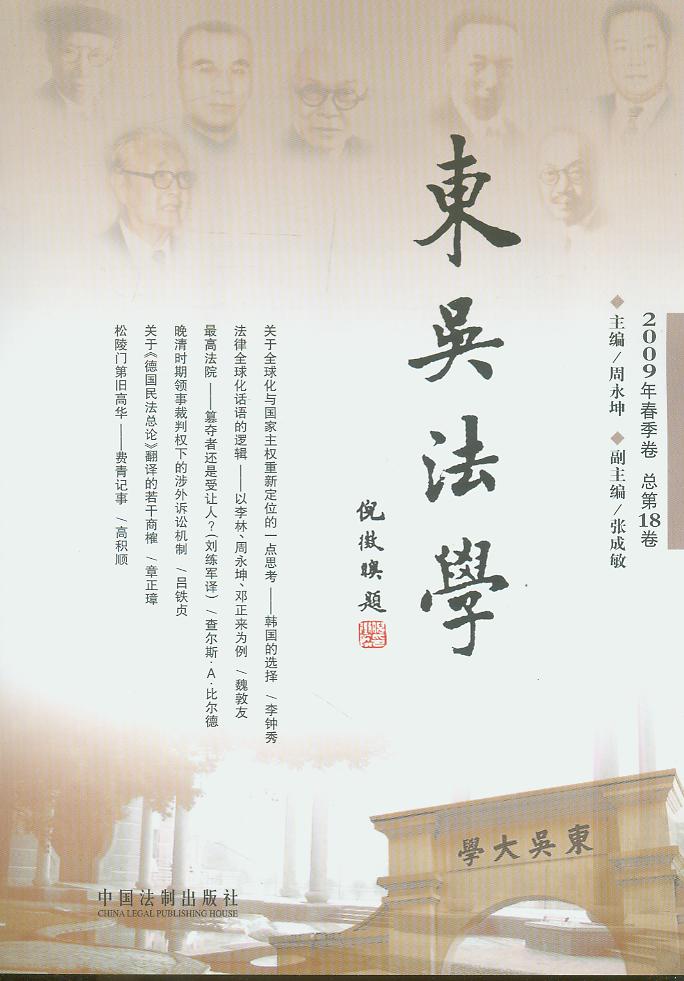 東吳法學
倪徵𣋉題
2009年春季卷 总第18卷
◆主编/周永坤 ◆副主编/张成敏
关于全球化与国家主权重新定位的一点思考——韩国的选择 /李钟秀
法律全球化话语的逻辑——以李林、周永坤、邓正来为例 /魏敦友
最高法院——篡夺者还是受让人?(刘练军译) /查尔斯·A·比尔德
晚清时期领事裁判权下的涉外诉讼机制 /吕铁贞
关于《德国民法总论》翻译的若干商榷 /章正璋
松陵门第旧高华——费青记事 /高积顺
東吳大學
中国法制出版社
CHINA LEGAL PUBLISHING HOUSE